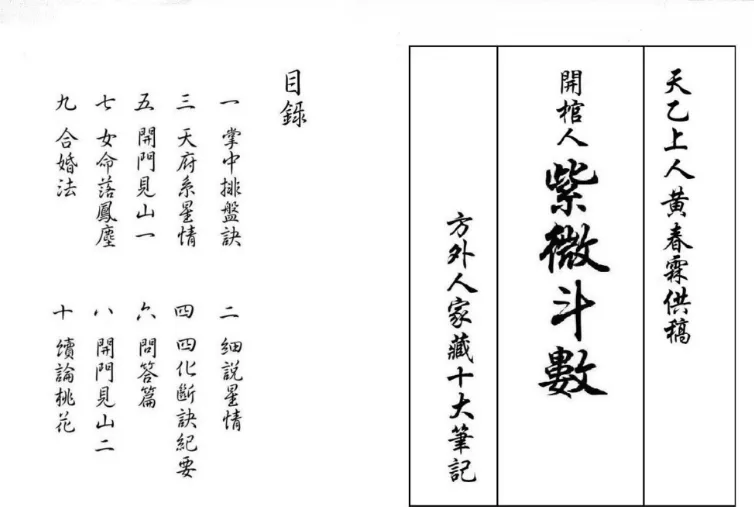 天乙上人黃春霖供稿
開棺人紫微斗數
方外人家藏十大筆記
目錄
一 掌中排盤訣
二 細說星情
三 天府系星情
四 四化斷訣紀要
五 開門見山一
六 問答篇
七 女命落鳳塵
八 開門見山二
九 合婚法
十 續論桃花